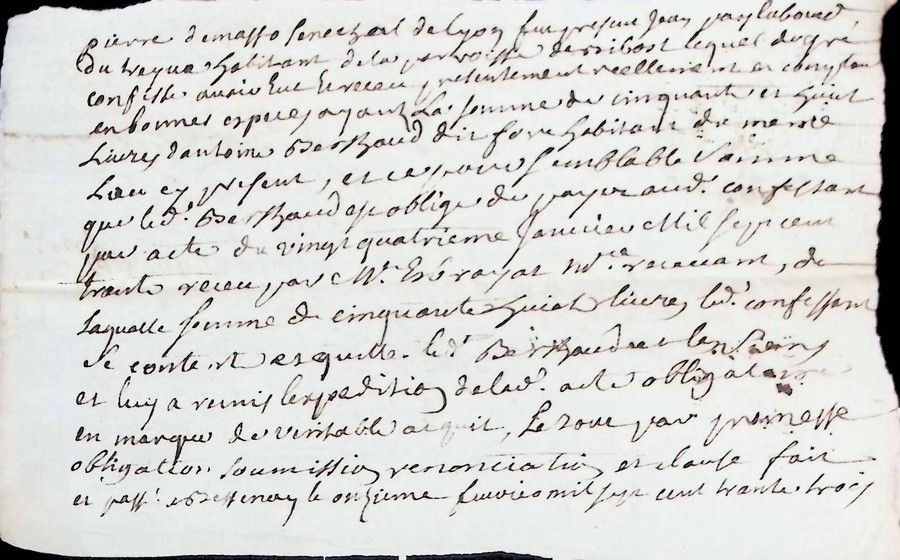 pierre demasso senechal de lyon fut present Jean
du treyva habitant de la parroisse de ribost lequel de gré
confesse avoir Eut Et receu presentement reellement et comptant
en bonnes especes ayant La somme de cinquante et huict
Livres d'antoine Berthaud dit fore habitant du meme
Lieu cy present, et ce pour semblable Somme
que led.t Berthaud est obligé de payer aud.t confessant
par acte du vingt quatrieme Janvier Mil sept cent
trante receu par M.re no.re recevant, de
laquelle somme de cinquante huict livres led.t confessant
se content et quitte led.t Berthaud et les siens
et luy a remis l'expedition de lad.e acte obligatoire
en marque de veritable acquit, Le tout par promesse
obligation soumission renonciation et clause fait
et passé a Bessenay le onzieme mil sept cent trante trois